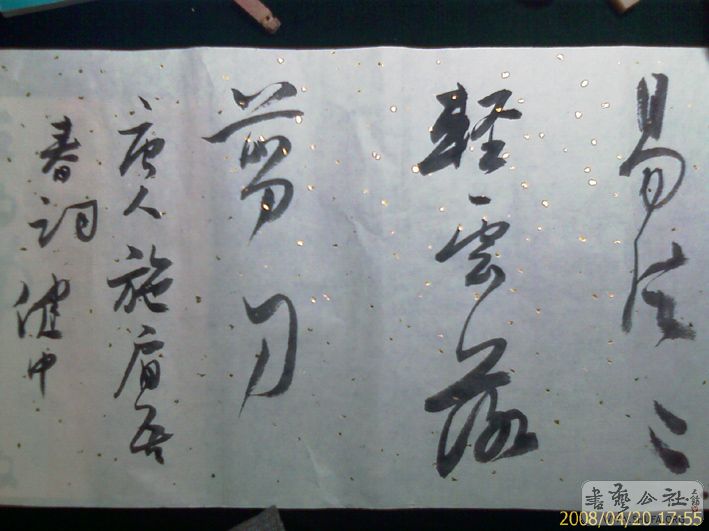 易片〻
軽雲落
剪刀
唐人施肩吾
春詞 健中
書藝公社
2008/04/20 17:55